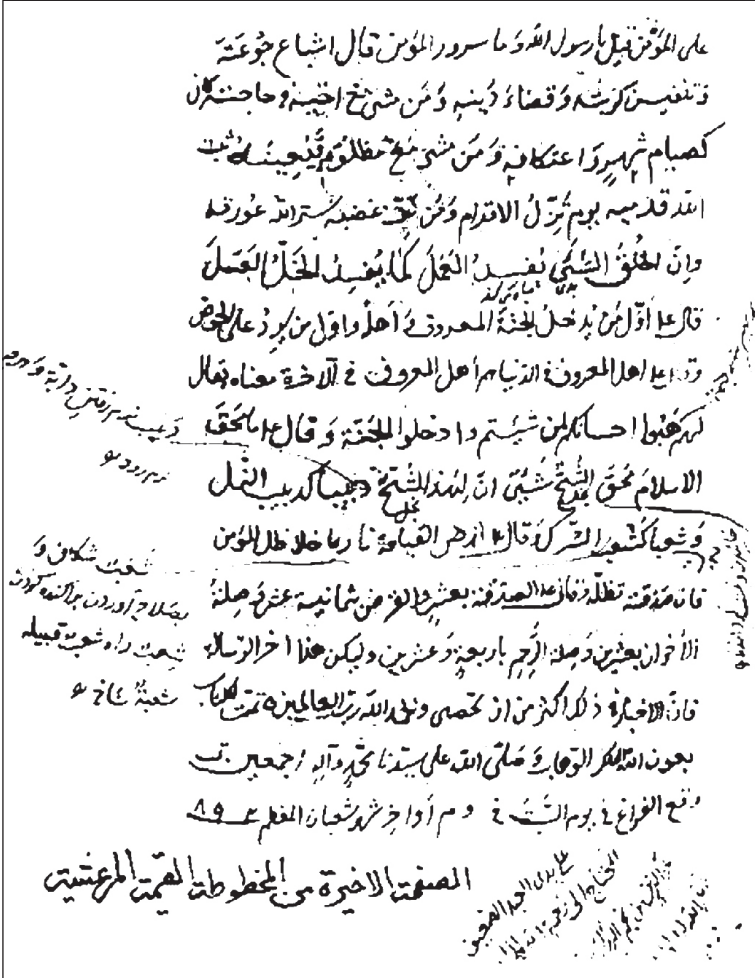 على المؤمن قيل يا رسول الله و ما سرور المؤمن قال اشباع جوعته
و تنفيس كربته و قضاء دينه و من مشى مع اخيه في حاجته كان
كصيام شهر و اعتكافه و من مشى مع مظلوم يعينه ثبت
الله قدميه يوم تزل الاقدام و من كف غضبه ستر الله عورته
و ان الخلق السيّئ يفسد العمل كما يفسد الخلّ العسل
قال ع اوّل من يدخل الجنة المعروف و أهله و اول من يرد على الحوض
و قال ع اهل المعروف في الدنيا هم أهل المعروف في الآخرة معناه يقال
لهم هبوا احسانكم لمن شئتم و ادخلوا الجنة و قال ع ما محق
الاسلام محق الشحّ شيئ انّ لهذا الشحّ دبيبا كدبيب النمل
و شعبا كشعب الشرك و قال ع ارض القيامة نار ما خلا ظل المؤمن
فان صدقته تظلّه و قال ع الصدقة بعشر و القرض بثمانية عشر و صلة
الأخوان بعشرين و صلة الرحم باربعة و عشرين و ليكن هذا آخر الرسالة
فانّ الاخبار في ذلك اكثر من ان تحصى و الحمد لله ربّ العالمين تمت الكتاب
بعون الله الملك الوهاب و صلّى الله على سيّدنا محمّد و آله اجمعين
وقع الفراغ في يوم السبت في أواخر شهر شعبان المعظم
دبيب نرم رفتن
نرم رود
شعب شكافتن و
بصلاح آوردن پراكنده كردن
شعب راه شعب قبيله
شعبة شاخ
على يدي العبد الضعيف
المحتاج الى رحمة الله
الصفحة الاخيرة من المخطوطة القيّمة المرعشية